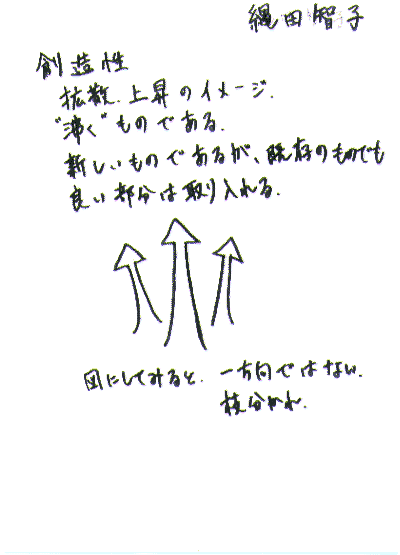 縄田智子
創造性
拡散、上昇のイメージ.
"沸く"ものである.
新しいものであるが、既存のものでも
良い部分は取り入れる.
図にしてみると、一方向ではない.
枝分かれ.